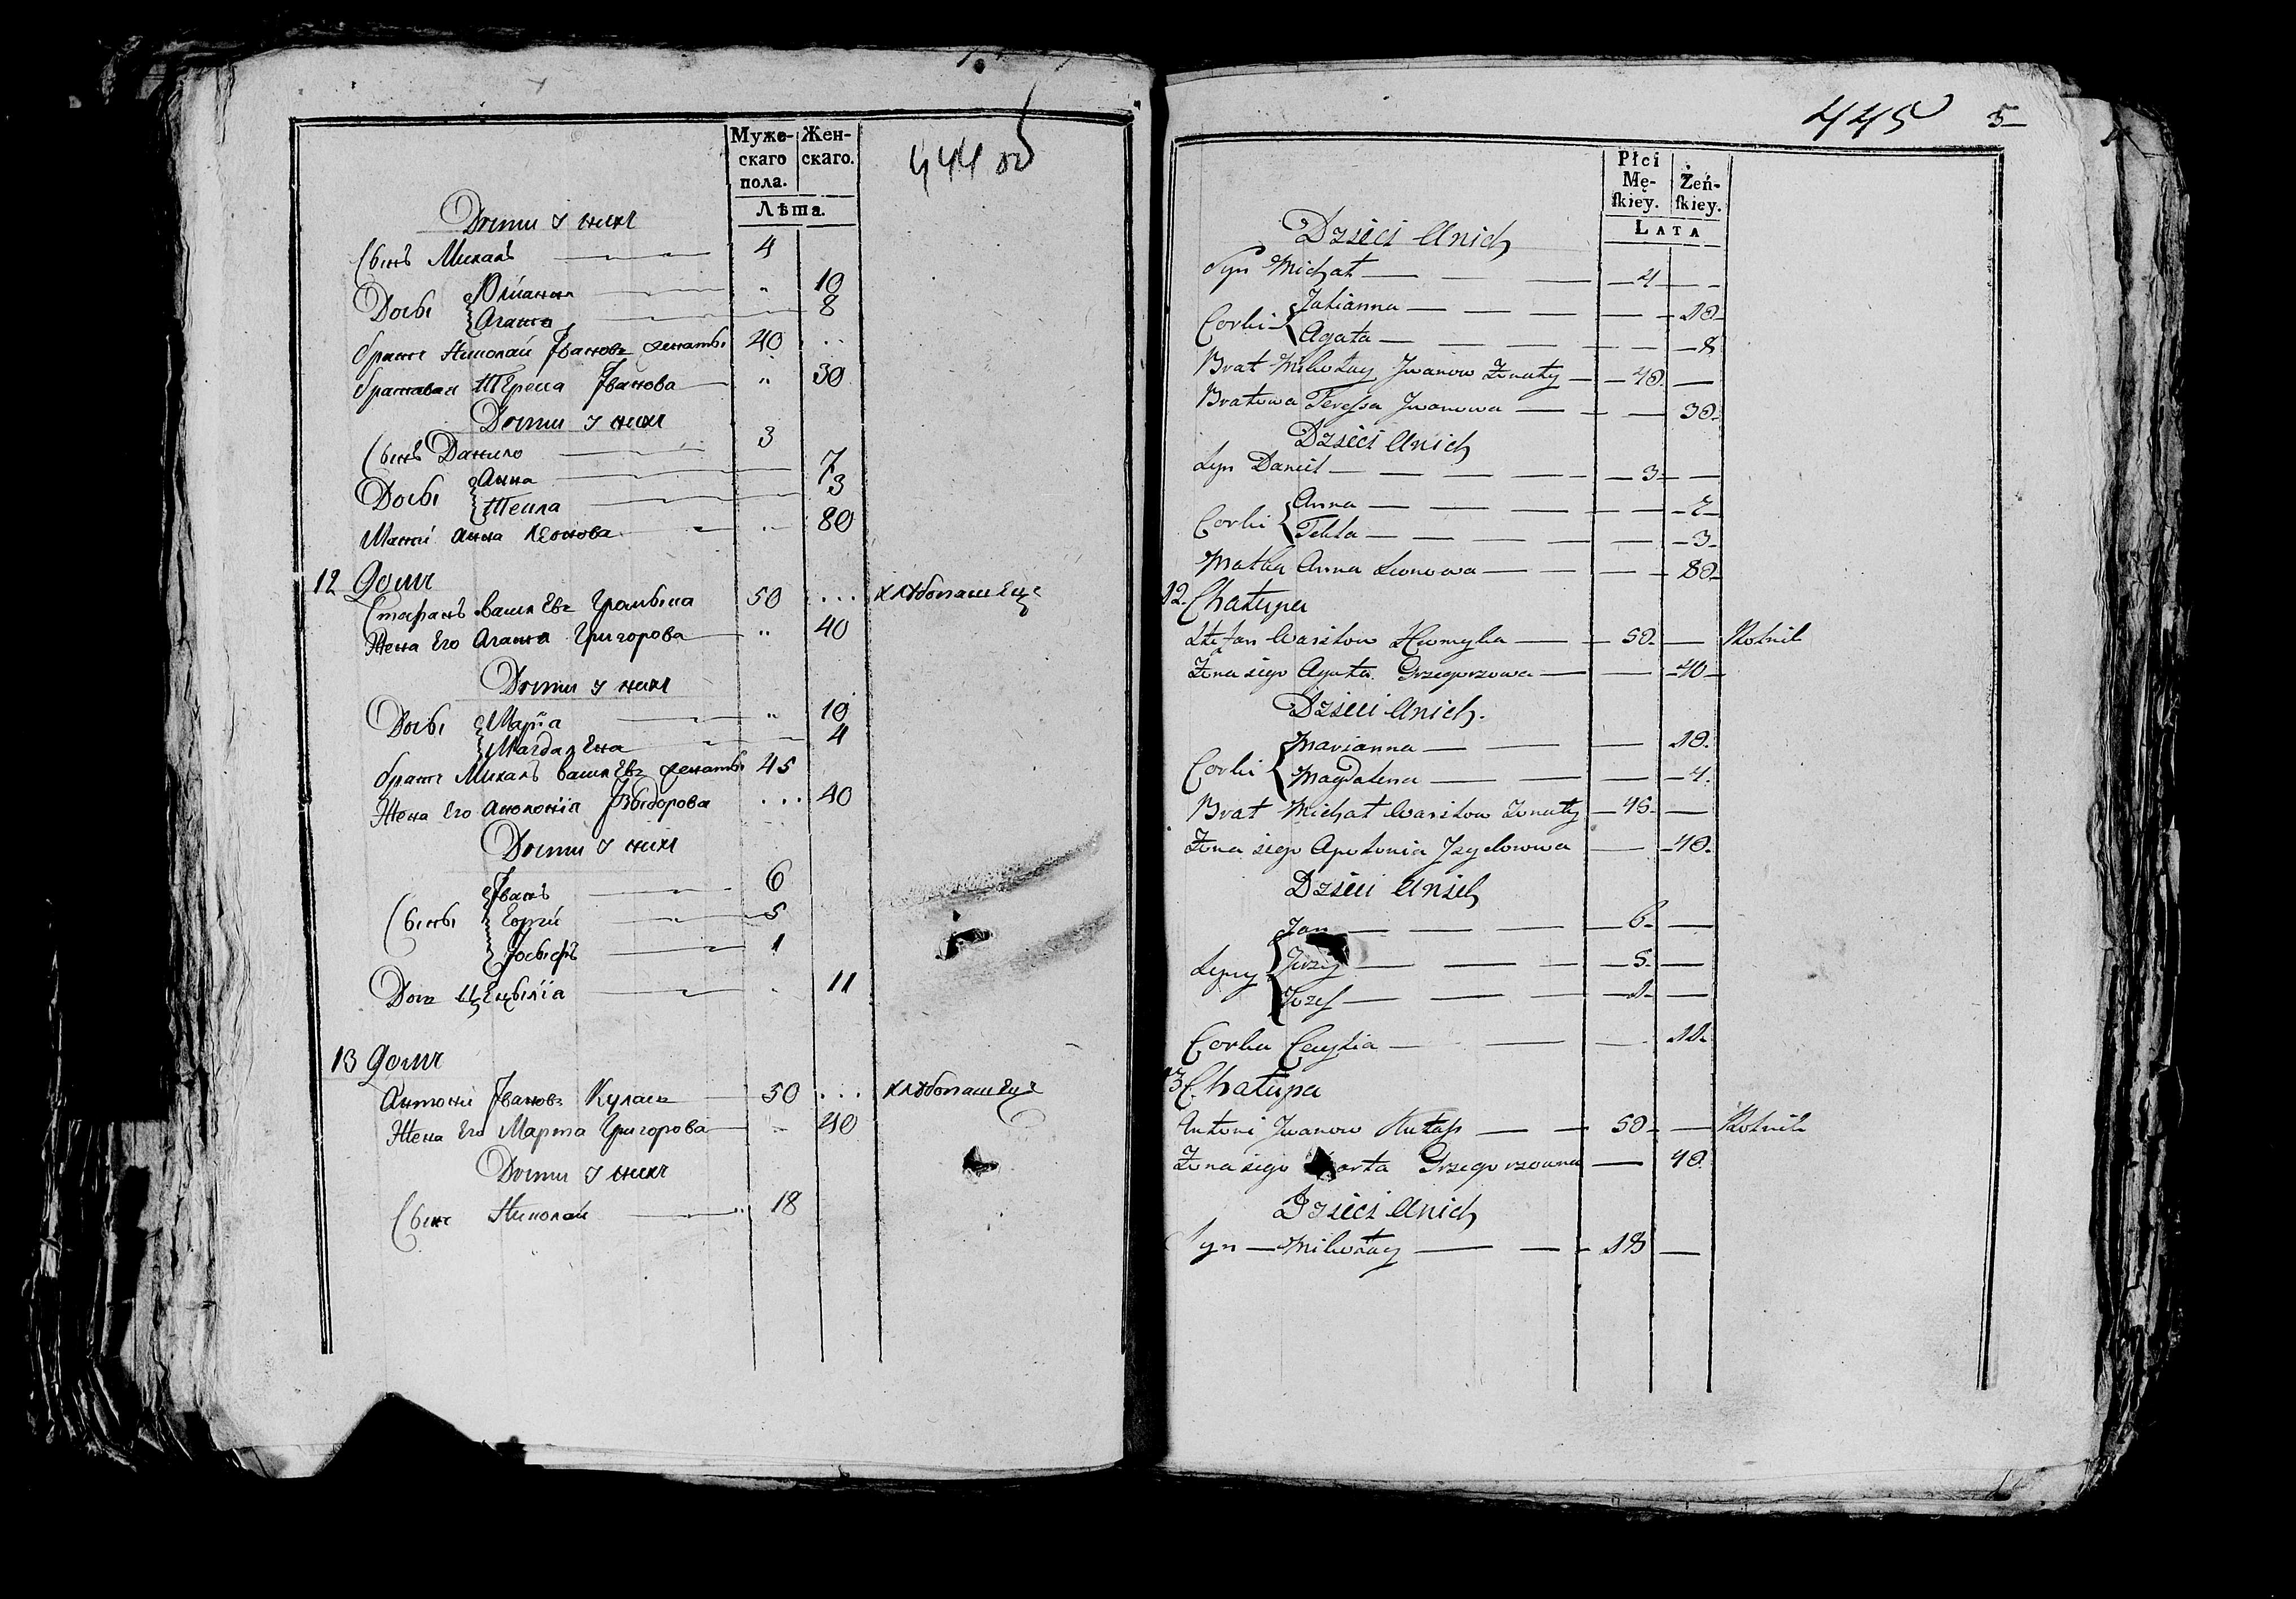 444 об
Муже-
скаго
пола.
Жен-
скаго.
Лѣта.
Дѣти у нихъ
Сынъ Михалъ 4
Дочьки Юліанна " 10
Агата 8
братъ Николай Ивановъ женаты 40 ..
братавая Тереса Иванова " 30
Дѣти у нихъ
Сынъ Данило 3
Дочьки Анна 7
Текла 3
Мать Анна Леонова .. 80
12 Домъ
Стефанъ василевъ 50 ... хлѣбопашецъ
Жена Его Агата Григорова .. 40
Дѣти у нихъ
Марія " 10
Магдалена 4
братъ Михалъ василевъ женаты 45
Жена Его Аполонія Изыдорова ... 40
Дѣти у нихъ
Сыны Иванъ 6
5
Іосыфъ 1
Доч Цецылія 11
13 Домъ
Антони Ивановъ 50 ... хлѣбопашецъ
Жена Его Марта Григорова .. 40
Дѣти у нихъ
Сынъ Николай 18
445 5
Płci
Mę-
ſkiey.
Żeń-
ſkiey.
LATA
Dzieci Unich
Syn Michał 4
Corki Julianna 10
Agata 8
Brat Mikołay Jwanow Żonaty 40
Bratowa Teressa Jwanowa 30
Dzieci Unich
Syn Daniel 3
Corki Anna 7
Tekla 3
Matka Anna Leonowa 80
12. Chałupa
Stefan Wasilow 50 Rolnik
Żona iego Agata Grzegorzowa 40
Dzieci Unich.
Corki Marianna 10
Magdalena 4
Brat Michał Wasilow Żonaty 45
Żona iego Apolonia Jzydorowa 40
Dzieci Unich
Syny Jan 6
Jerzy 5
Jozef 1
Corka Cecylia 11
13 Chałupa
Antoni Jwanow 50 Rolnik
Żona iego Marta Grzegorzowna 40
Dzieci Unich
Syn Mikołay 18